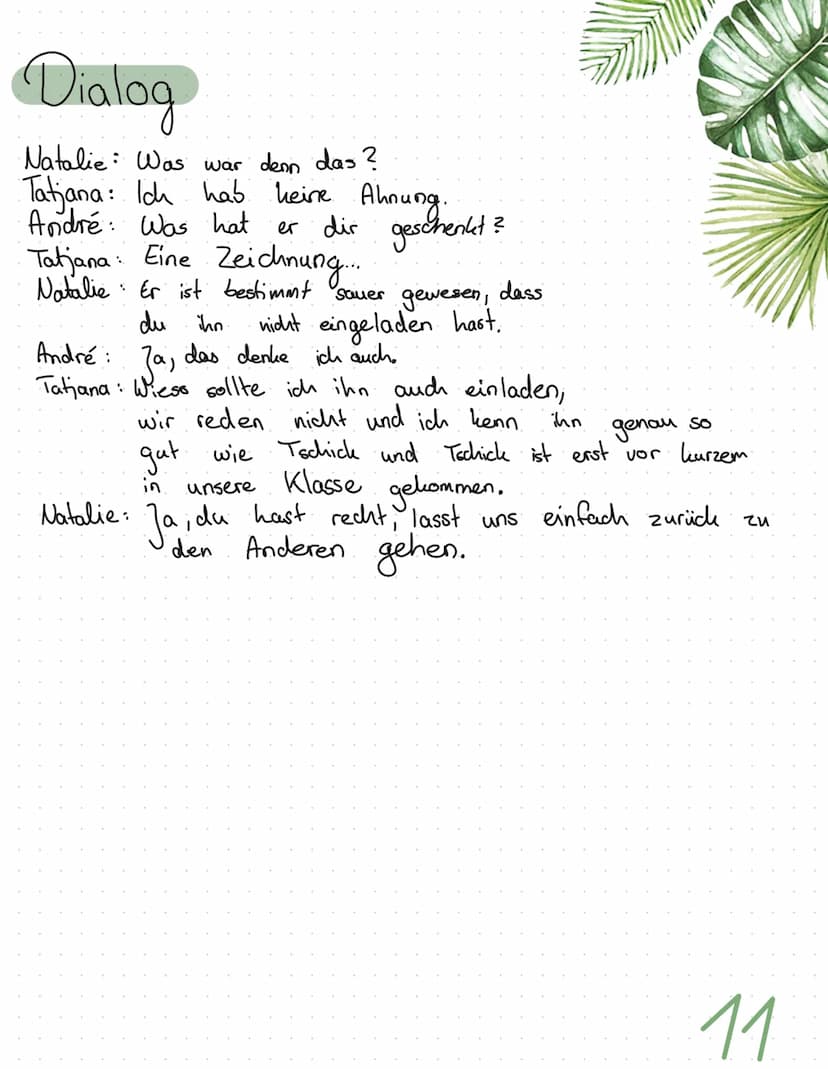 Dialog
Natalie: Was war denn das?
Tatjana: Ich hab keine Ahnung.
André: Was hat er dir geschenkt?
Tatjana: Eine Zeichnung...
Natalie: Er ist bestimmt sauer gewesen, dass
du ihn nicht eingeladen hast.
André: Ja, das denke ich auch.
Tatjana: Wieso sollte ich ihn auch einladen,
wir reden nicht und ich kenn ihn genau so
gut wie Tschick und Tschick ist erst vor kurzem
in unsere Klasse gekommen.
Natalie: Ja, du hast recht, lasst uns einfach zurück zu
den Anderen gehen.
11